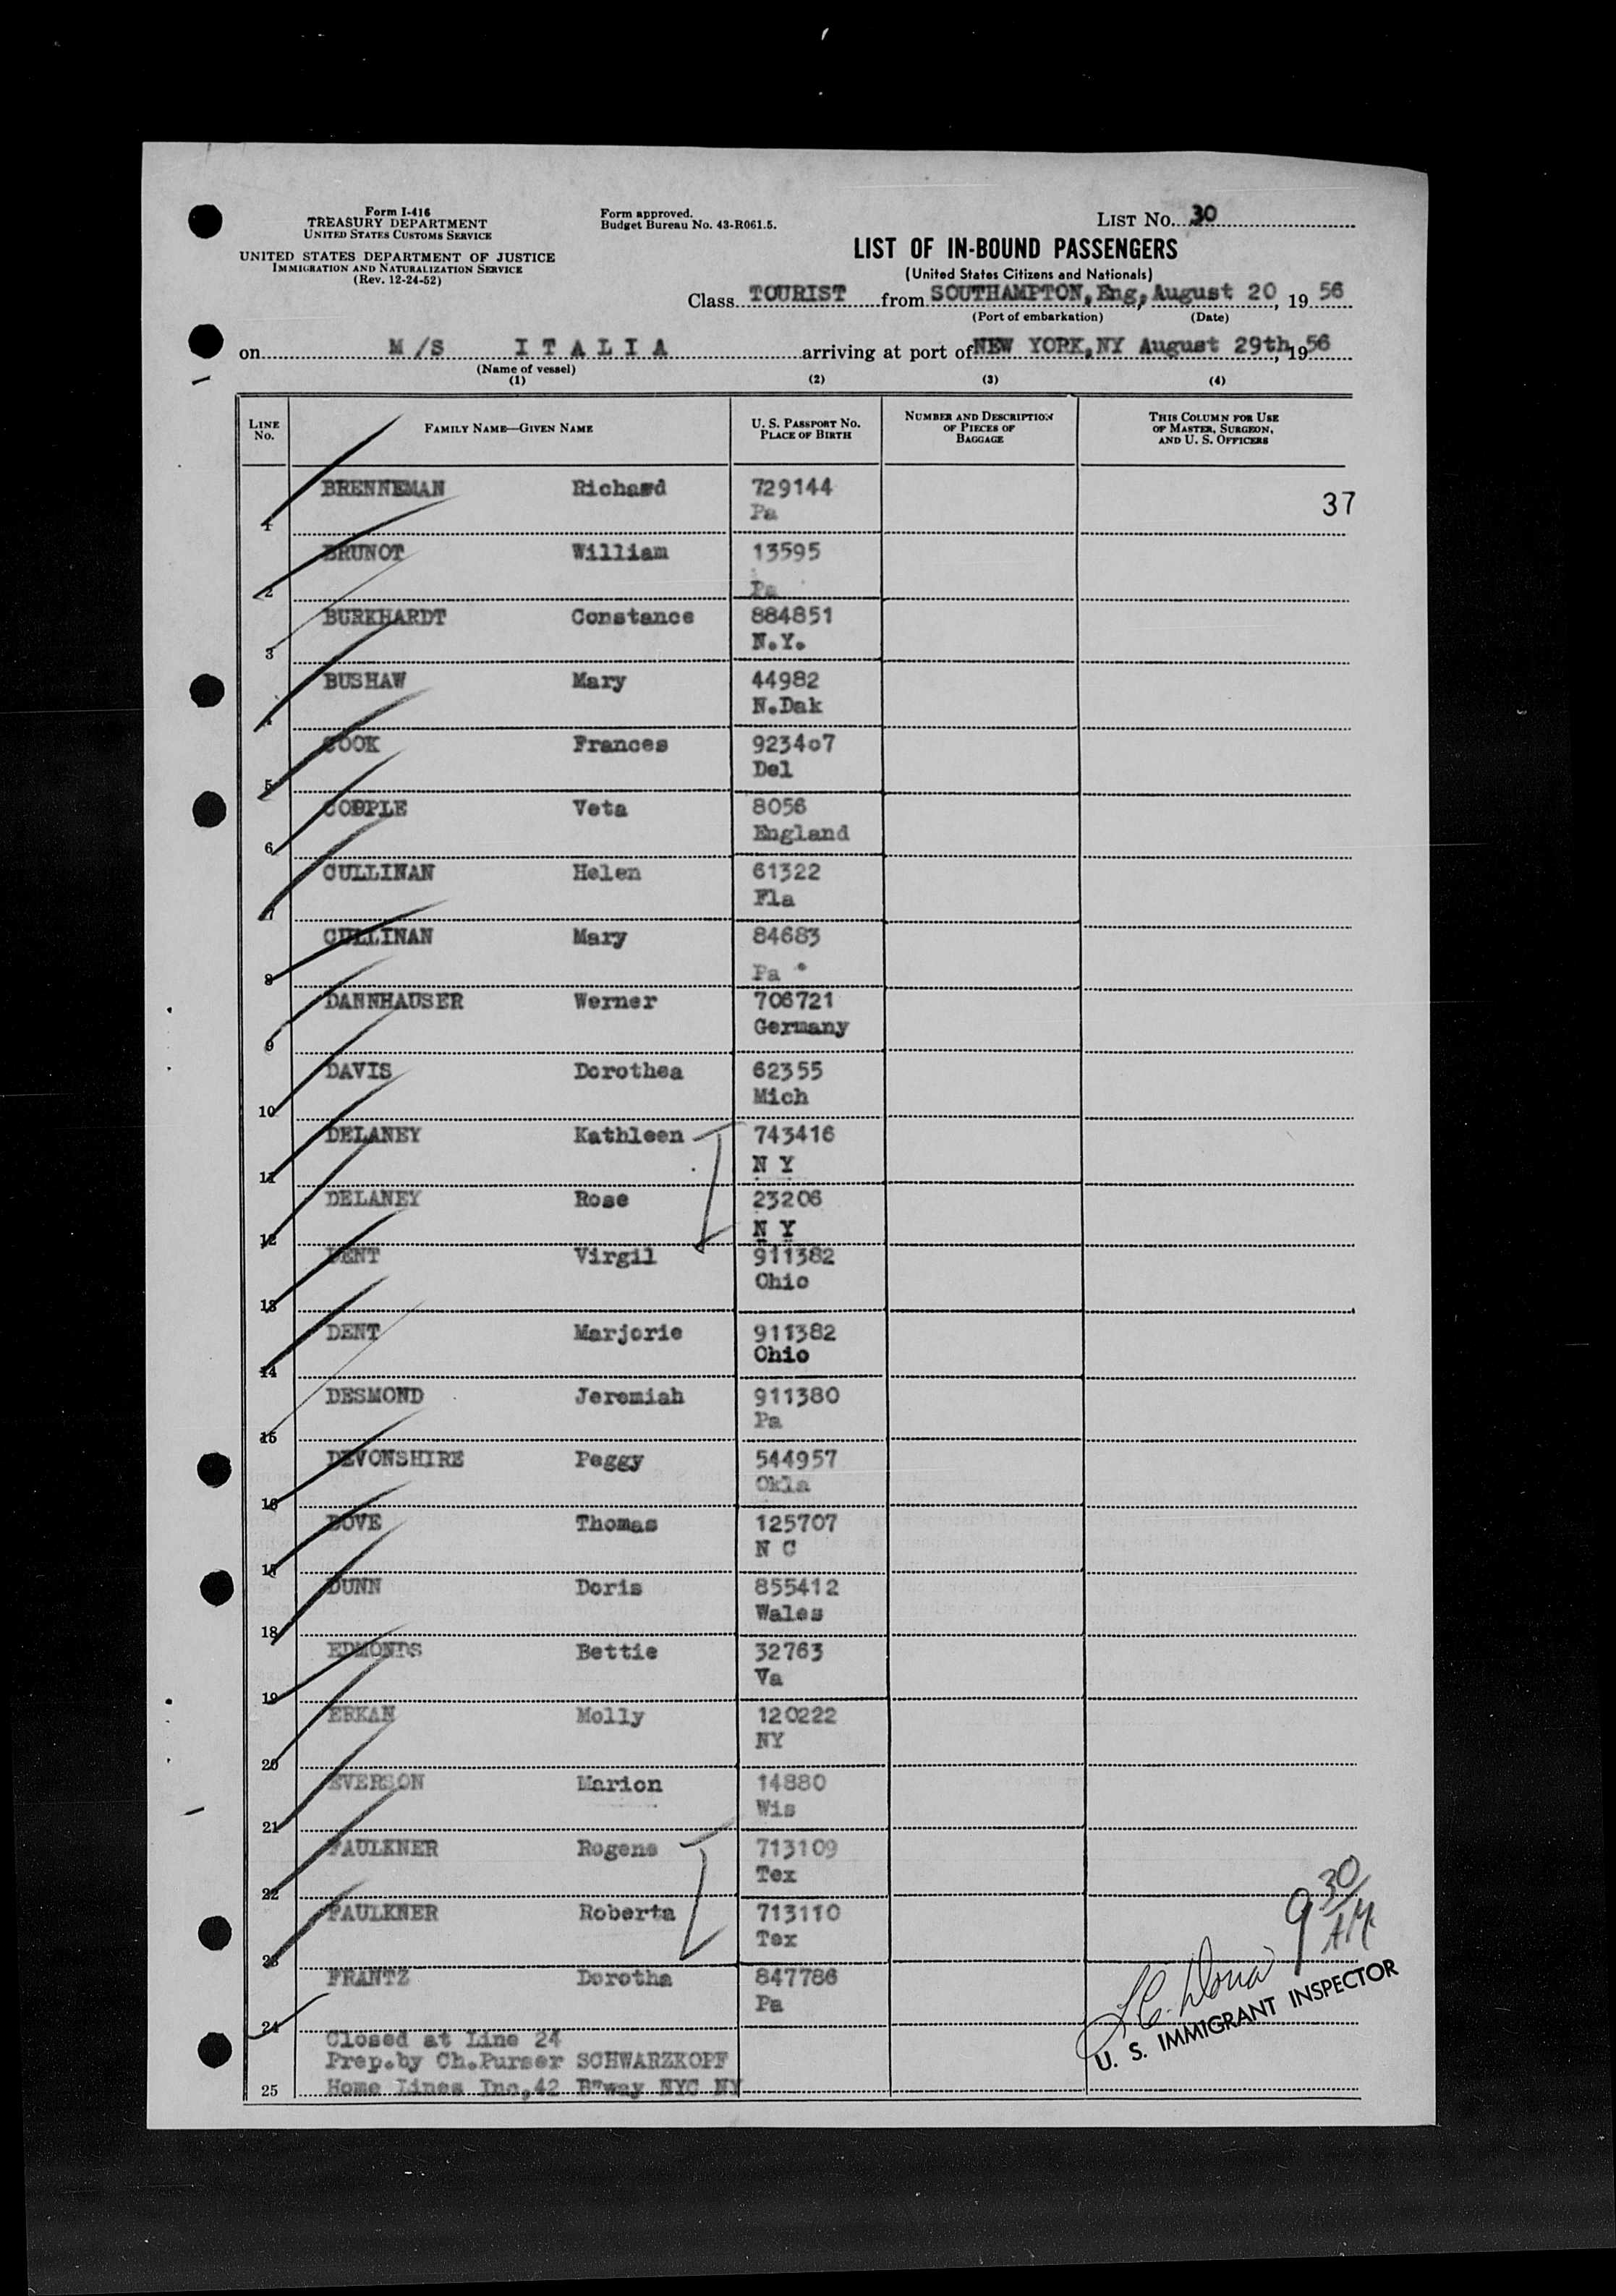 Form I-416
TREASURY DEPARTMENT
UNITED STATES CUSTOMS SERVICE
UNITED STATES DEPARTMENT OF JUSTICE
IMMIGRATION AND NATURALIZATION SERVICE
(Rev. 12-24-52)
Form approved.
Budget Bureau No. 43-R061.5.
LIST No. 30
LIST OF IN-BOUND PASSENGERS
(United States Citizens and Nationals)
Class TOURIST from SOUTHAMPTON, Eng, August 20, 19 56
(Port of embarkation) (Date)
on M/S ITALIA arriving at port of NEW YORK, NY August 29th, 19 56
(Name of vessel)
(1) (2) (3) (4)
LINE No. FAMILY NAME—GIVEN NAME U. S. PASSPORT No. PLACE OF BIRTH NUMBER AND DESCRIPTION OF PIECES OF BAGGAGE THIS COLUMN FOR USE OF MASTER, SURGEON, AND U. S. OFFICERS
37
1 BRENNEMAN Richard 729144
Pa
2 BRUNOT William 13595
Pa
3 BURKHARDT Constance 884851
N.Y.
4 BUSHAW Mary 44982
N.Dak
5 COOK Frances 923407
Del
6 Veta 8056
England
7 CULLINAN Helen 61322
Fla
8 CULLINAN Mary 84683
Pa
9 DANNHAUSER Werner 706721
Germany
10 DAVIS Dorothea 62355
Mich
11 DELANEY Kathleen 743416
N Y
12 DELANEY Rose 23206
N Y
13 DENT Virgil 911382
Ohio
14 DENT Marjorie 911382
Ohio
15 DESMOND Jeremiah 911380
Pa
16 DEVONSHIRE Peggy 544957
Okla
17 DOVE Thomas 125707
N C
18 DUNN Doris 855412
Wales
19 EDMONDS Bettie 32763
Va
20 ERKAN Molly 120222
NY
21 EVERSON Marion 14880
Wis
22 FAULKNER Rogene 713109
Tex
23 FAULKNER Roberta 713110
Tex
24 FRANTZ Dorotha 847786
Pa
Closed at Line 24
Prep.by Ch.Purser SCHWARZKOPF
25 Home Lines Inc,42 B"way NYC NY
9 30 AM
U. S. IMMIGRANT INSPECTOR